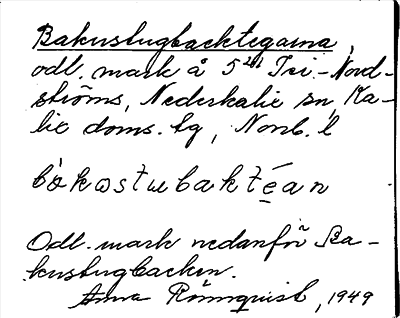 Bakustugbacktegarna,
odl. mark å 5 st Tri.-Nord-
ströms, Nederkalix sn, Ka-
lix doms. tg, Norrb. l
bòkωstωbaktéan
Odl. mark nedanför Ba-
kustugbacken.
Anna Rönnquist, 1949